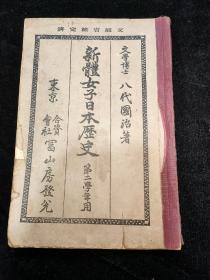 文部省檢定濟
文學博士 八代國治著
新體女子日本歷史 第二學年用
東京 合資會社 冨山房發兌